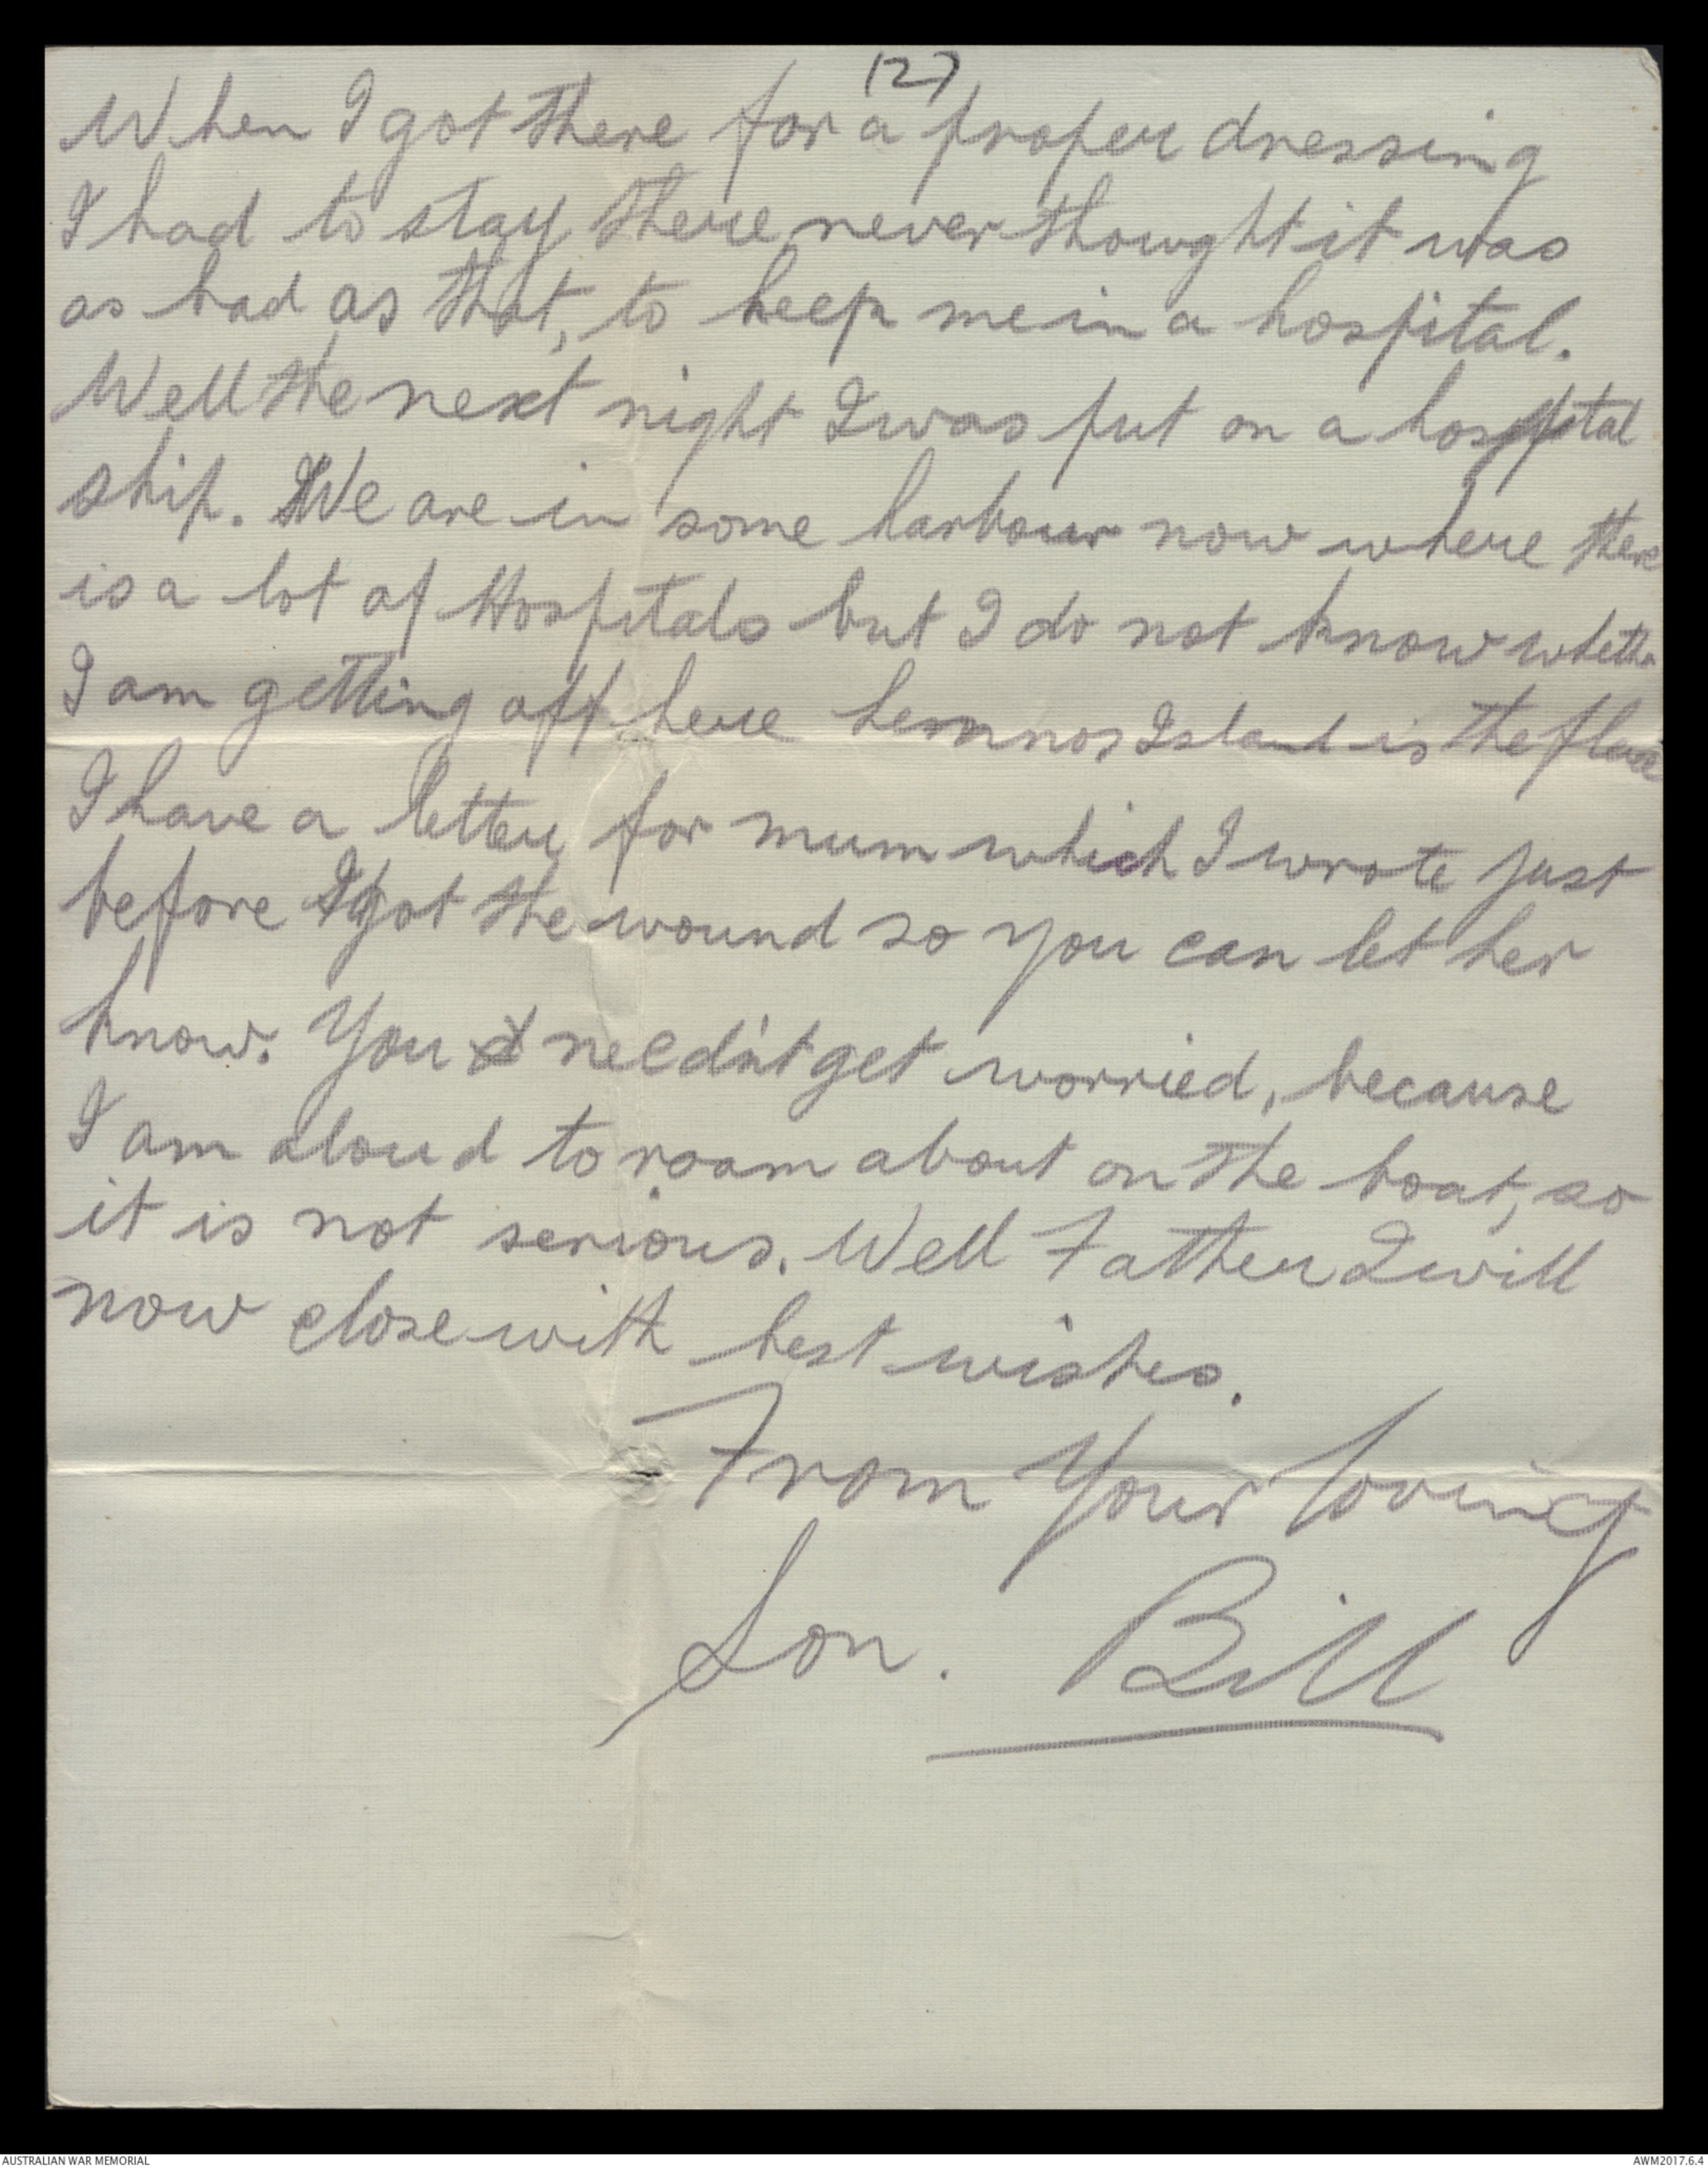 (2)
When I got there for a proper dressing
I had to stay there never thought it was
as bad as that, to keep me in a hospital.
Well the next night I was put on a hospital
ship. We are in some harbour now where there
is a lot of Hospitals but I do not know whether
I am getting off here Lemnos Island is the place
I have a letter for mum which I wrote just
before I got the wound so you can let her
know. You needn't get worried, because
I am aloud to roam about on the boat, so
it is not serious. Well Father I will
now close with best wishes.
From Your loving
Son. Bill
AUSTRALIAN WAR MEMORIAL
AWM2017.6.4